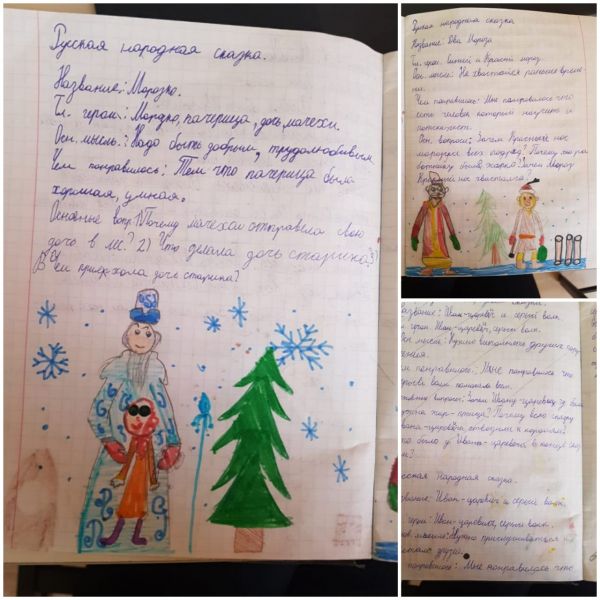 Русская народная сказка.
Название: Морозко.
Гл. герои: Морозко, падчерица, дочь, мачехи.
Осн. мысль: Надо быть добрым, трудолюбивым
Чем понравилось: Тем что падчерица была
хорошая, умная.
Основные вопр. 1) Почему мачеха отправела свою
дочь в лес? 2) Что делала дочь старика? 3)
В чём приехала дочь старика?
Русская народная сказка
Название: Два Мороза
Гл. герои: Синий и Красный мороз.
Осн. мысль: Не хвастайся раньше време-
ни.
Чем понравилось: Мне понравилось что
есть человек который научить и
Осн. вопросы: Зачем Красный нос
морозил всех подряд? Почему
было жарко? Зачем Мороз
Красный нос хвастался?
Иван-царевич и серый волк.
герои: Иван-царевич, серый волк.
мысль: Нужно выполнять другие
понравилось: Мне понравилось что
серый волк помогал
вопросы: Зачем Ивану-царевичу
жар-птица? Почему
Ивана-царевича отвозили к королю?
было у Ивана-царевича в конце
Народная сказка.
Иван-царевич и серый волк.
герои: Иван-царевич, серый волк.
мысль: Нужно прислушиваться к
друга.
понравилось: Мне понравилось что